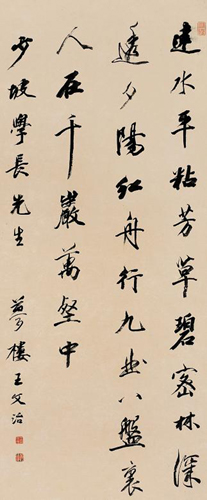 遠水平粘芳草碧密林深
透夕陽紅舟行九曲八盤裏
人在千巖萬壑中
少坡學長先生
夢樓王文治